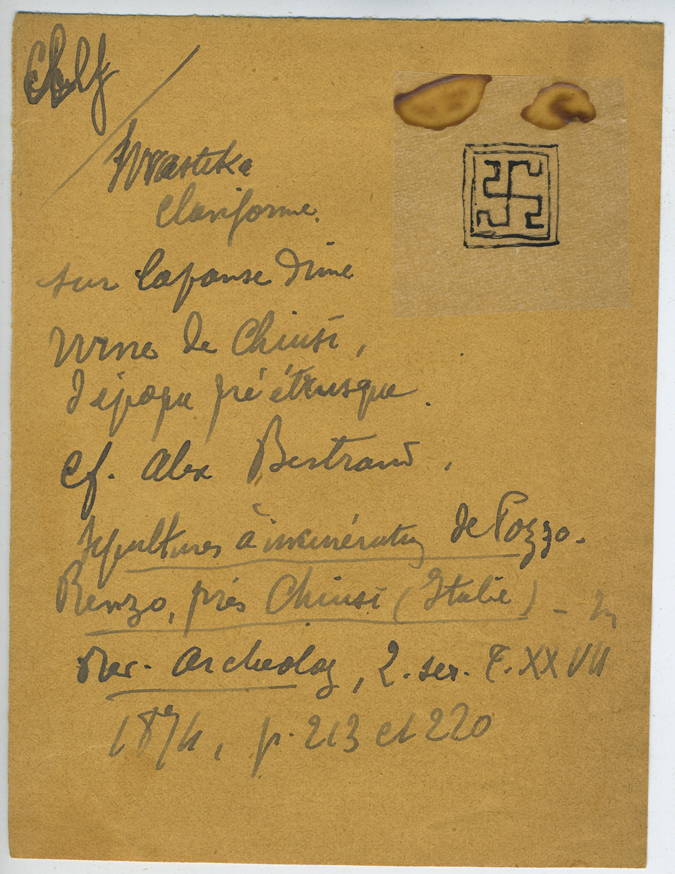 Swastika
claviforme.
sur la panse d'une
urne de Chiusi,
d'époqu pré étrusque.
cf. Alex Bertrand,
Sépultures à incinération de Poggo-
Renzo, près Chiusi (Italie) - In
Rev. Archeolog, 2. ser. T. XXVII
1874, p. 213 et 220